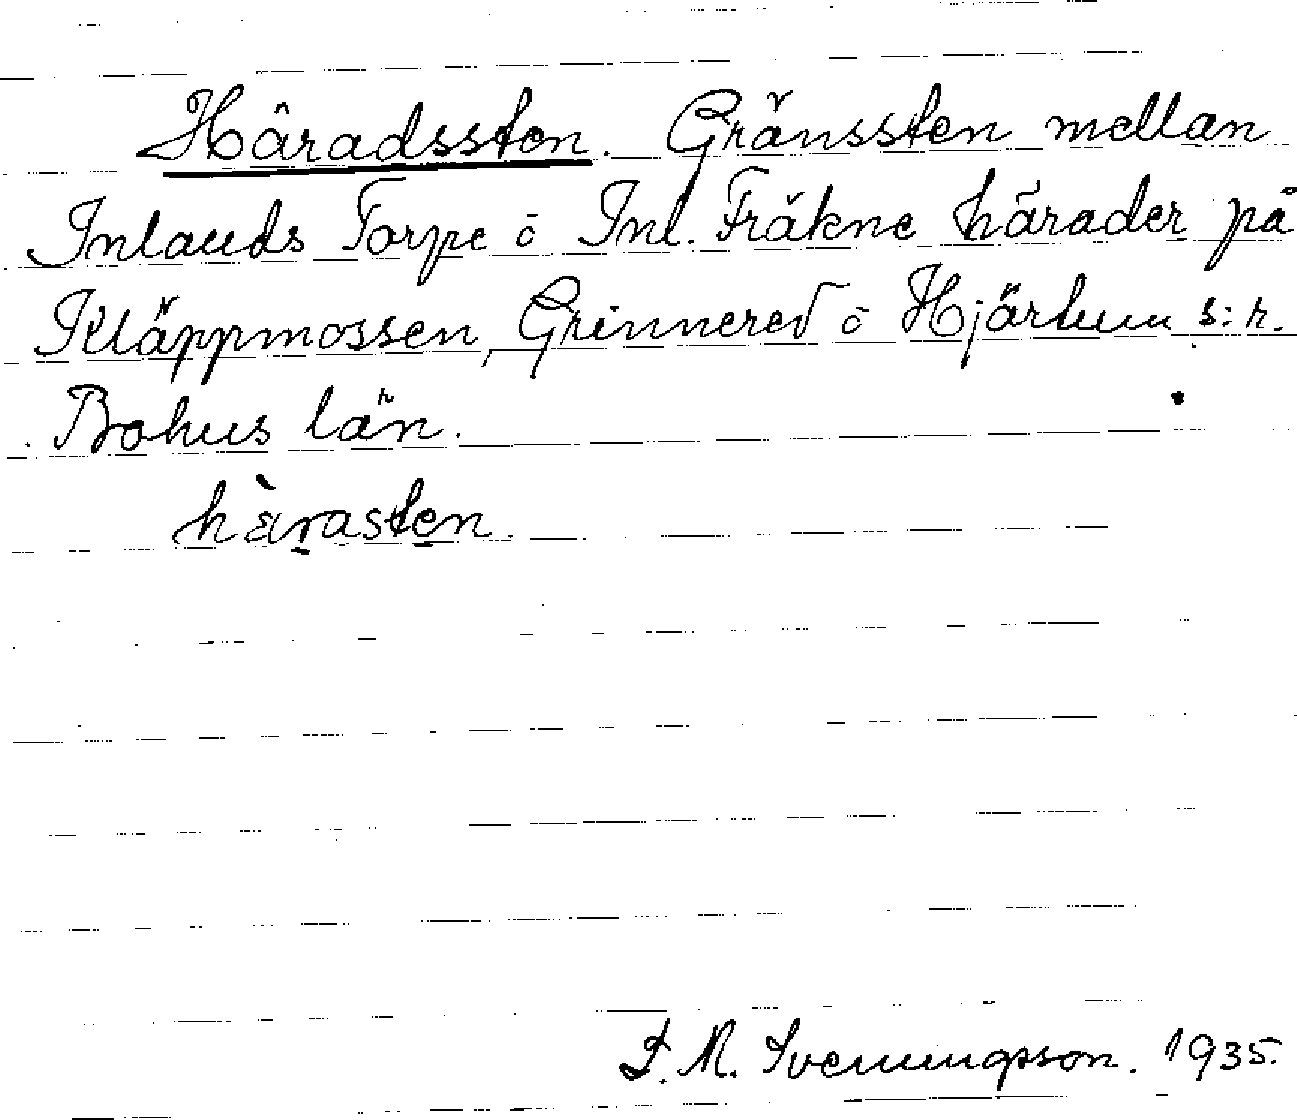 Häradssten. Gränssten mellan
Inlands Torpe ō Inl. Fräkne härader på
Kläppmossen, Grinnered ō Hjärtum s:r.
Bohus län.
hàrasten.
S. M. Svenningsson. 1935.